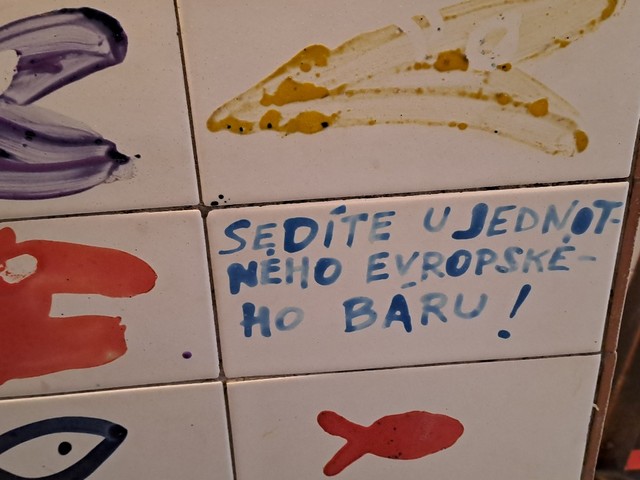 SEDÍTE U JEDNOT-
NÉHO EVROPSKÉ-
HO BÁRU!